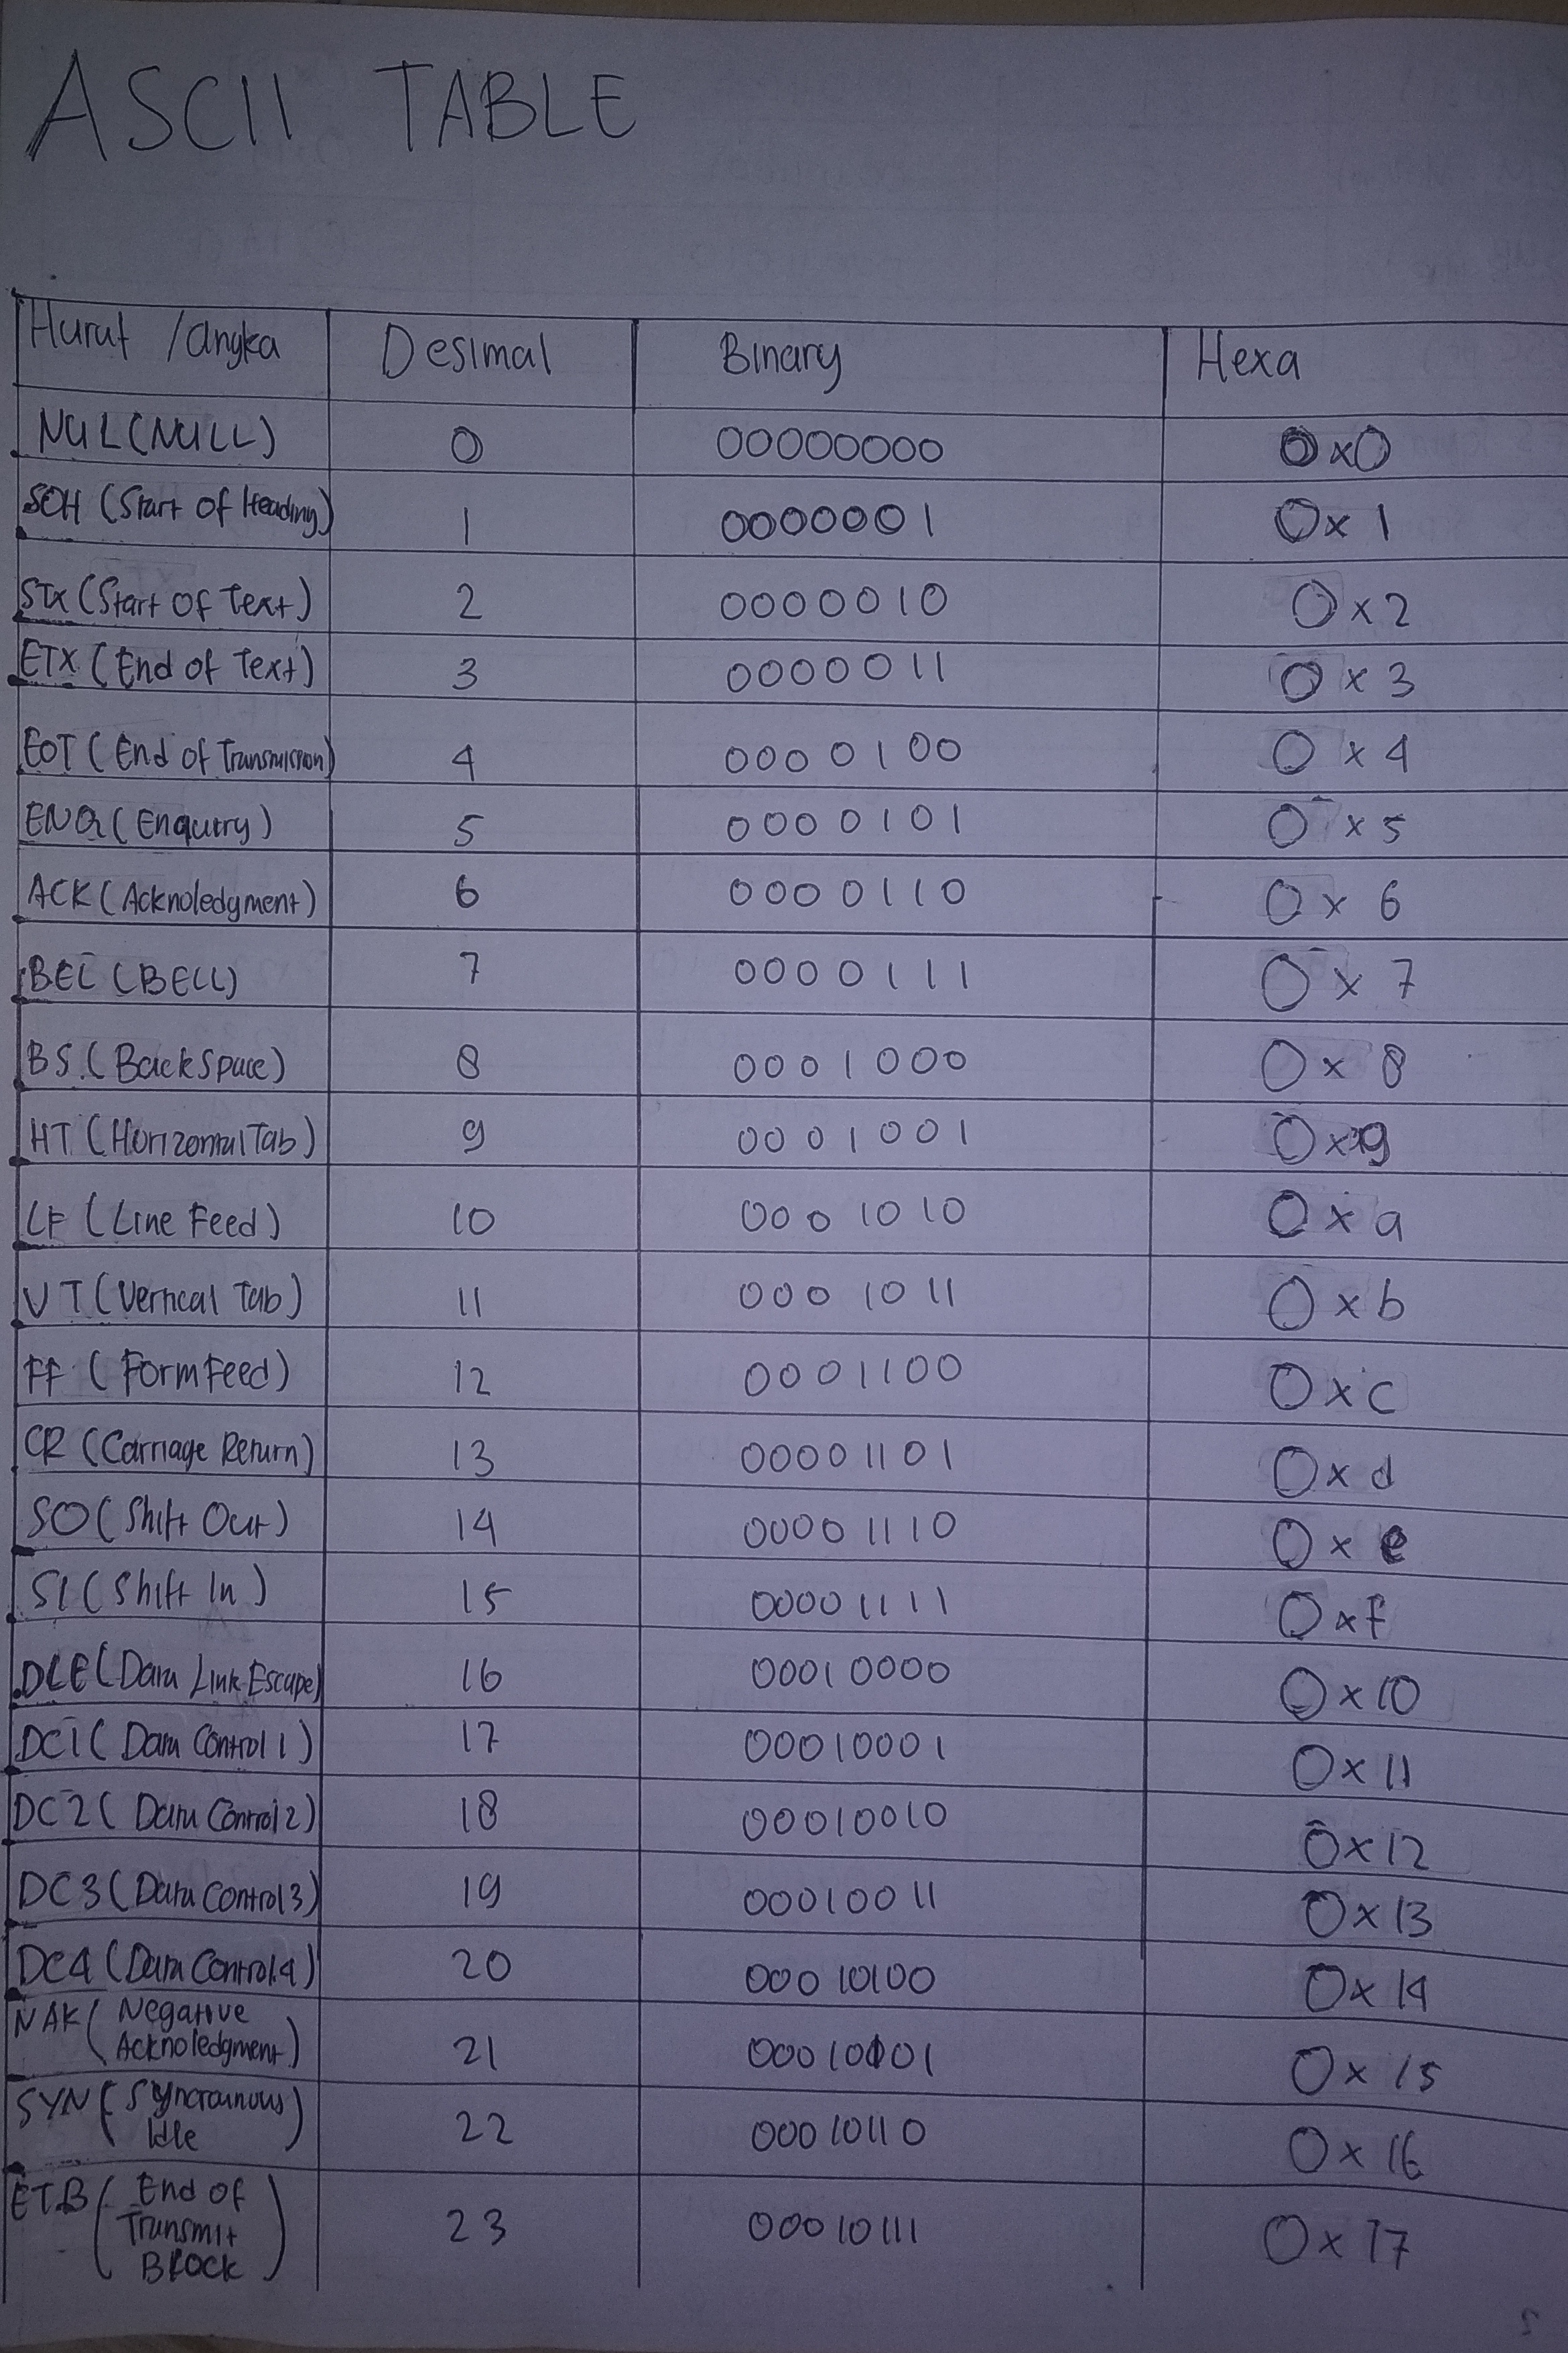 ASCII TABLE
Huruf /angka Desimal Binary Hexa
NUL(NULL) 0 00000000 0x0
SOH (Start of Heading) 1 0000001 0x1
STX (Start of Text) 2 0000010 0x2
ETX (End of Text) 3 0000011 0x3
EOT (End of Transmission) 4 0000100 0x4
ENQ (Enquiry) 5 0000101 0x5
ACK (Acknoledgment) 6 0000110 0x6
BEL (BELL) 7 0000111 0x7
BS (BackSpace) 8 0001000 0x8
HT (Horizontal Tab) 9 0001001 0x9
LF (Line Feed) 10 0001010 0xa
VT (Vertical Tab) 11 0001011 0xb
FF (FormFeed) 12 0001100 0xc
CR (Carriage Return) 13 00001101 0xd
SO (Shift Out) 14 00001110 0xe
SI (Shift In) 15 00001111 0xf
DLE (Data Link Escape) 16 00010000 0x10
DC1 (Data Control 1) 17 00010001 0x11
DC2 (Data Control 2) 18 00010010 0x12
DC3 (Data Control 3) 19 00010011 0x13
DC4 (Data Control 4) 20 00010100 0x14
NAK (Negative
Acknoledgment) 21 00010101 0x15
SYN (Syncrounous
Idle) 22 00010110 0x16
ETB (End of
Transmit
Block) 23 00010111 0x17